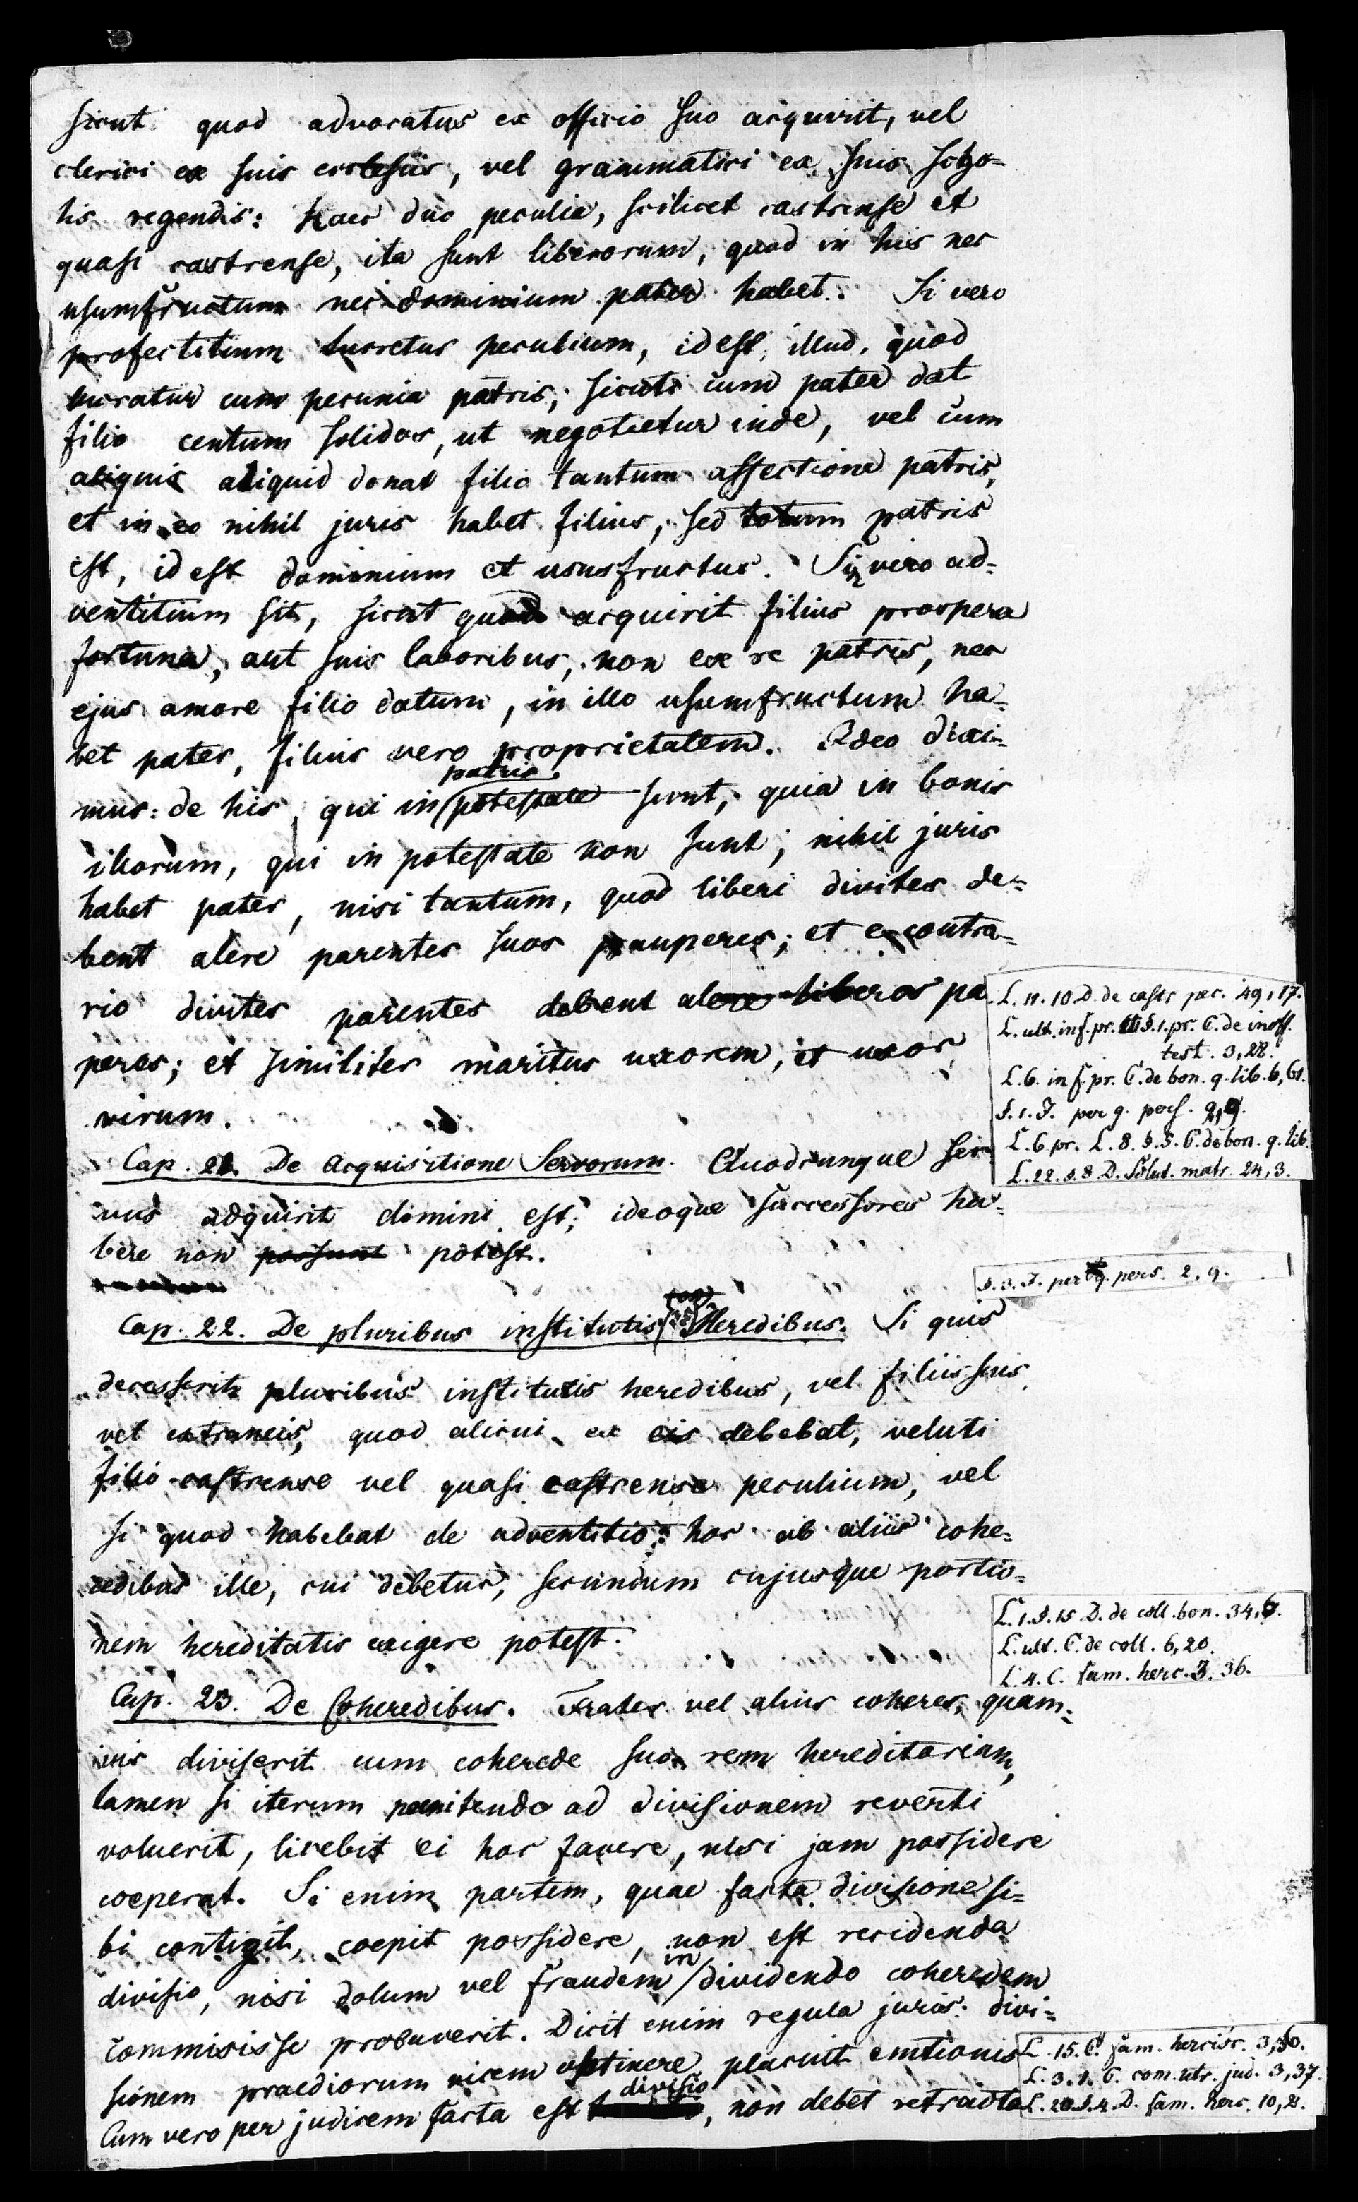 sicut quod advocatus ex officio suo acquirit, vel
clerici ex suis ecclesiis, vel grammatici ex suis scho-
lis regendis: haec duo peculia, scilicet castrense et
quasi castrense, ita sunt liberorum, quod in his nec
usumfructum nec dominium pater habet. Si vero
profectitium lucretur peculium, id est, illud, quod
lucratur cum pecunia patris, sicuti cum pater dat
filio centum solidos, ut negotietur inde, vel cum
aliquis aliquid donat filio tantum affectione patris,
et in eo nihil juris habet filius, sed totum patris
est, id est dominium et ususfructus. Si vero ad-
ventitium sit, sicut quod acquirit filius prospera
fortuna, aut suis laboribus, non ex re patris, nec
ejus amore filio datum, in illo usumfructum ha-
bet pater, filius vero proprietatem. Ideo dixi-
mus: de his, qui in patris potestate sunt, quia in bonis
illorum, qui in potestate non sunt, nihil juris
habet pater, nisi tantum, quod liberi divites de-
bent alere parentes suos pauperes; et e contra-
rio divites parentes debent alere liberos pa
peres; et similiter maritus uxorem, et uxor
virum.
L. 11. 10 D. de castr pec. 49, 17.
L. ult. in f. pr. et §. 1. pr. C. de inoff.
test. 3, 28.
L. 6. in f. pr. C. de bon. q. lib. 6, 61.
§. 1. J. per q. pers. 2, 9.
L. 6 pr. L. 8. §. 5. C. de bon. q. lib.
L. 22. §. 8. D. Solut. matr. 24, 3.
Cap. 21. De acquisitione Servorum. Quodcunque ser-
vus adquirit domini est; ideoque successores ha-
bere non possunt potest.
§. 3. J. per q. pers. 2, 9.
Cap. 22. De pluribus institutis Heredibus. Si quis
decesserit pluribus institutis heredibus, vel filiis suis
vel extraneis, quod alicui ex eis debebat, veluti
filio castrense vel quasi castrense peculium, vel
si quod habebat de adventitio: hoc ab aliis cohe-
redibus ille, cui debetur, secundum cujusque portio-
nem hereditatis exigere potest.
L. 1. §. 15. D. de coll. bon. 34, 6.
L. ult. C. de coll. 6, 20.
L. 4. C. fam. herc. 3. 36.
Cap. 23. De Coheredibus. Frater vel alius coheres, quam-
vis diviserit cum coherede suo rem hereditariam,
tamen si iterum poenitendo ad divisionem reverti
voluerit, licebit ei hoc facere, nisi jam possidere
coeperat. Si enim partem, quae facta divisione si-
bi contigit, coepit possidere, non est recidenda
divisio, nisi dolum vel fraudem in dividendo coheredem
commisisse probaverit. Dicit enim regula juris: divi-
sionem praediorum vicem obtinere placuit emtionis
Cum vero per judicem facta est divisio, non debet retracta
L. 15. C. fam. hercisc. 3, 36.
L. 3. 1. C. com. utr. jud. 3, 37.
L. 20. §. 4. D. fam. herc. 10, 2.